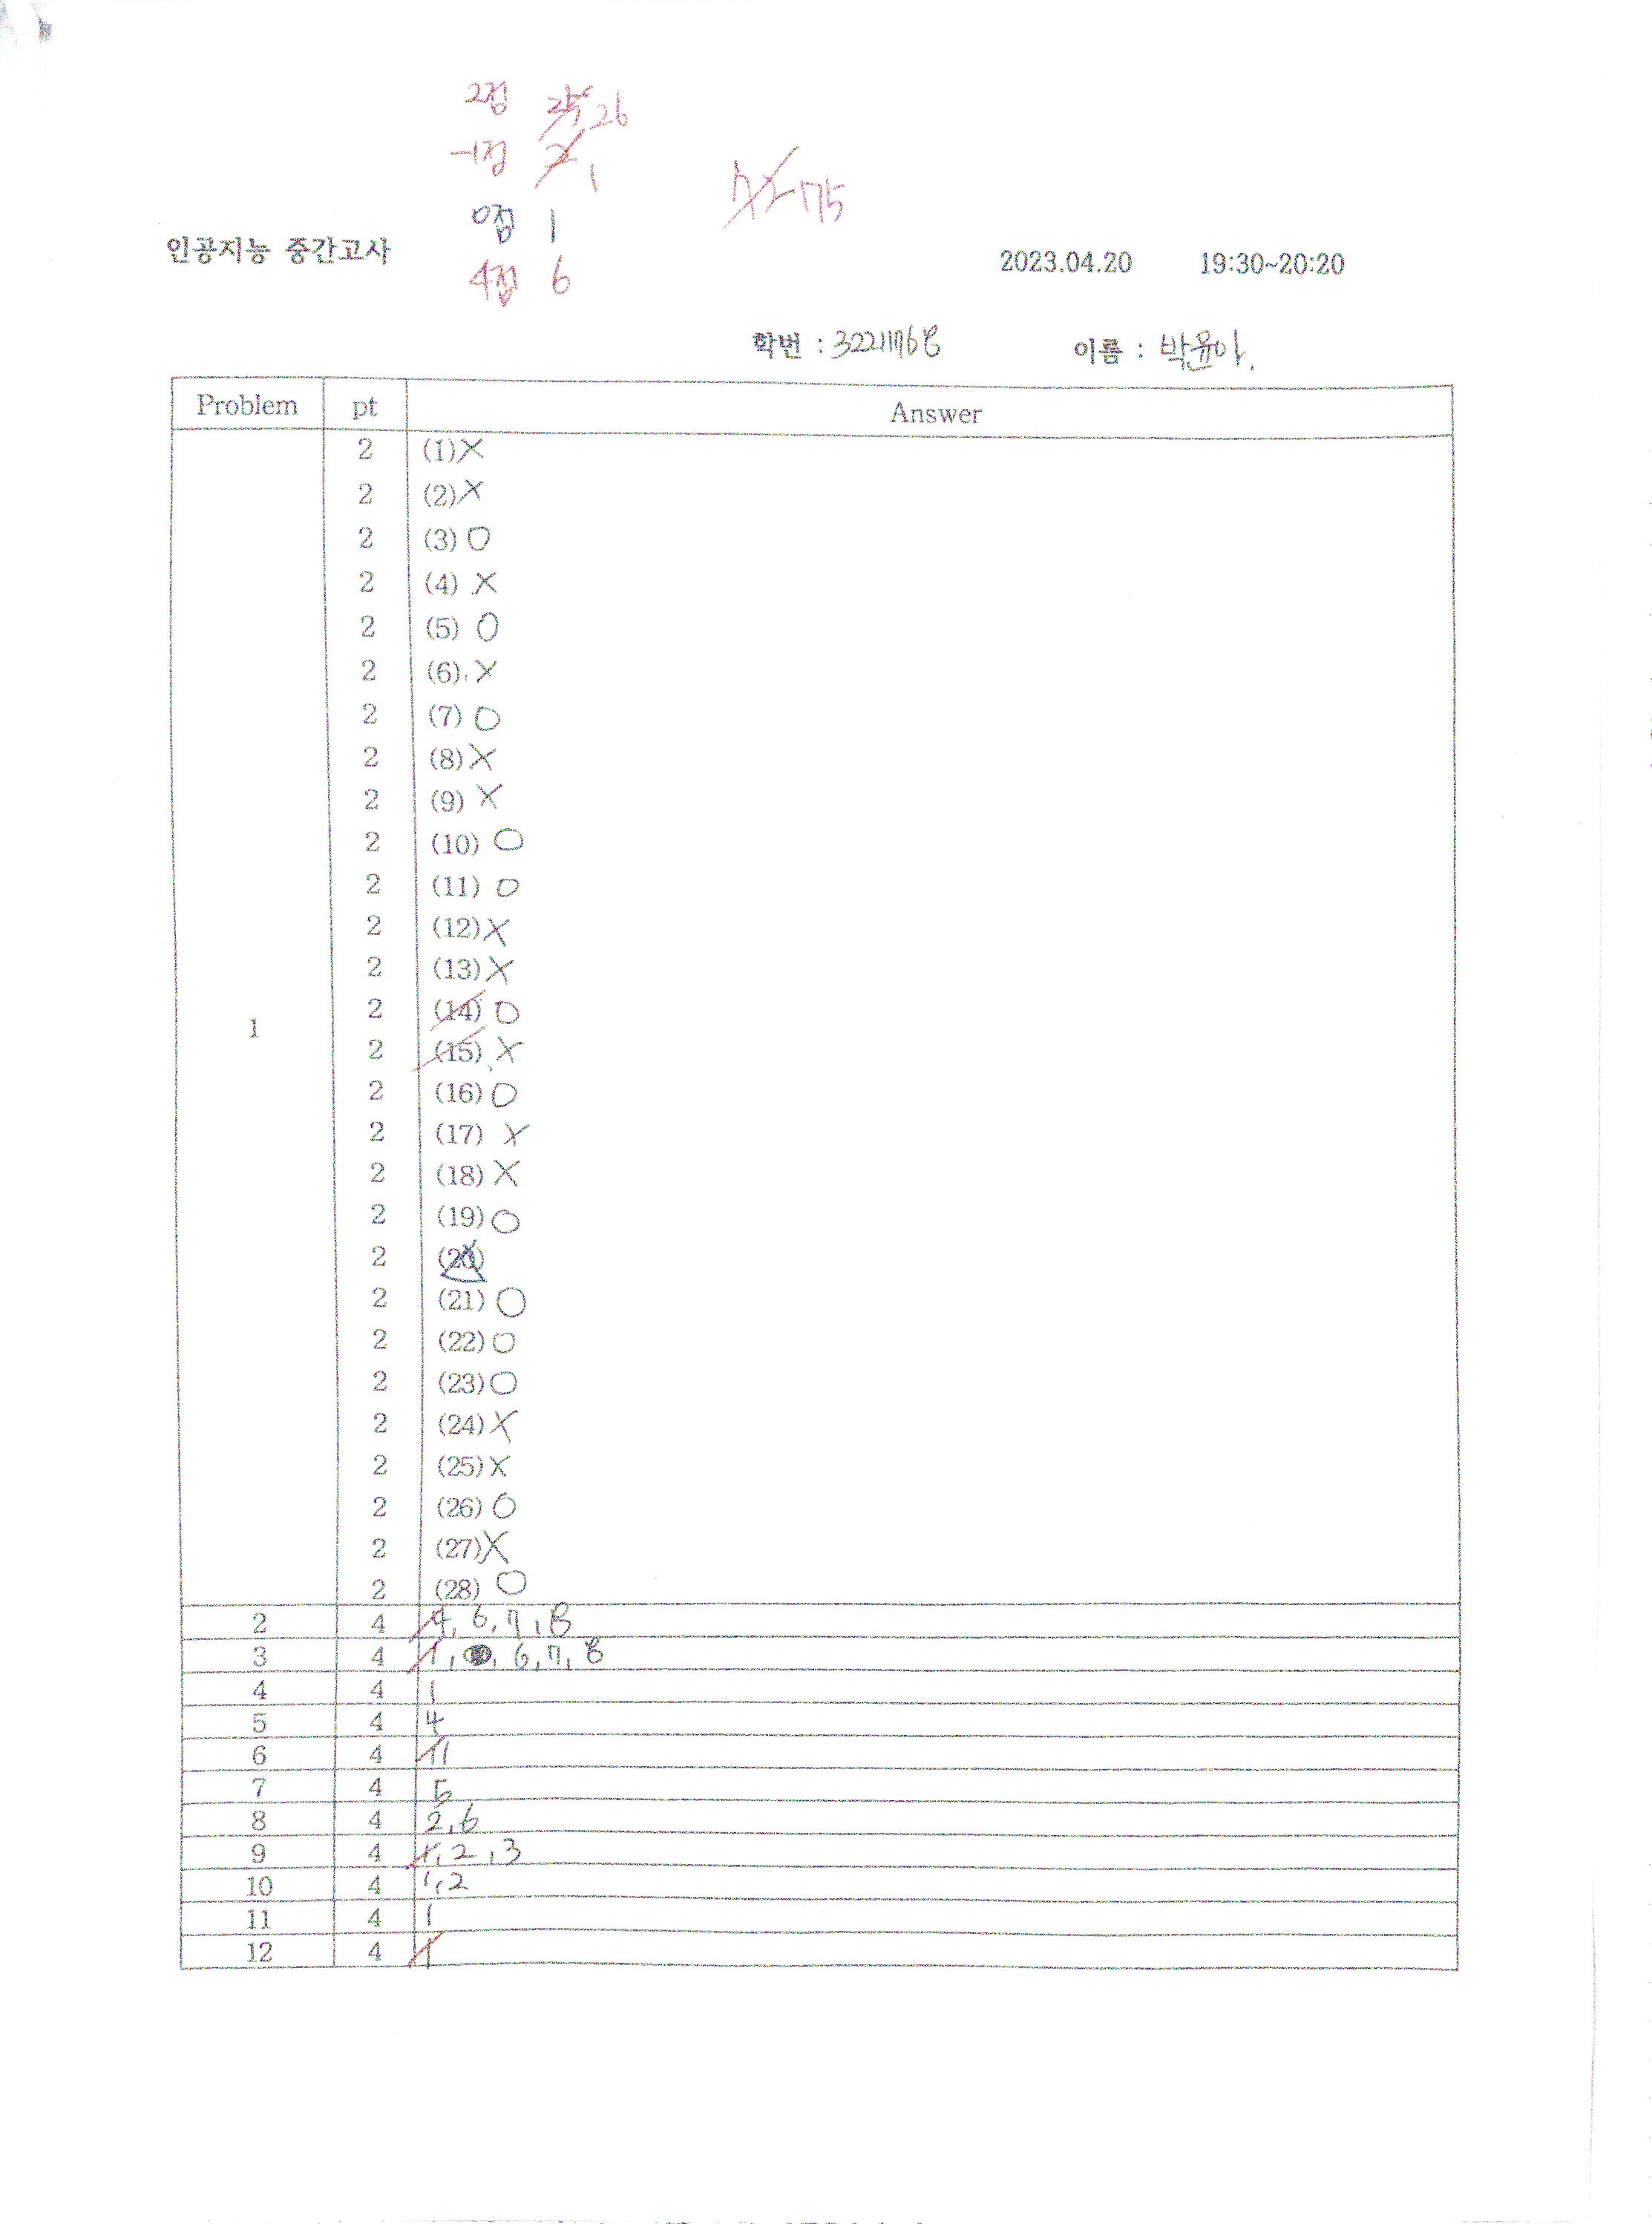 2점 25 26
-1점 2 1
72 75
0점 1
인공지능 중간고사
4점 6
2023.04.20 19:30~20:20
학번 : 32211768 이름 : 박윤아.
Problem pt Answer
2 (1) X
2 (2) X
2 (3) O
2 (4) X
2 (5) O
2 (6) X
2 (7) O
2 (8) X
2 (9) X
2 (10) O
2 (11) O
2 (12) X
2 (13) X
2 (14) O
1
2 (15) X
2 (16) O
2 (17) X
2 (18) X
2 (19) O
2 (20)
2 (21) O
2 (22) O
2 (23) O
2 (24) X
2 (25) X
2 (26) O
2 (27) X
2 (28) O
2 4 4, 6, 7, 8
3 4 1, 6, 7, 8
4 4 1
5 4 4
6 4 11
7 4 5
8 4 2, 6
9 4 1, 2, 3
10 4 1, 2
11 4 1
12 4 1